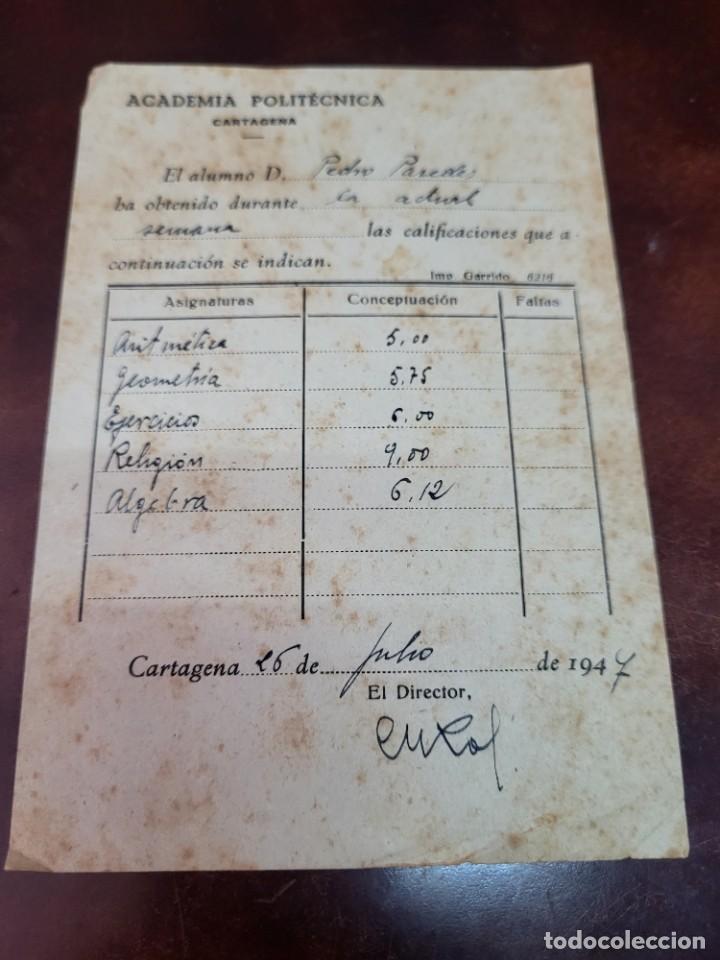 ACADEMIA POLITÉCNICA
CARTAGENA
El alumno D. Pedro Paredes
ha obtenido durante la actual
semana las calificaciones que a
continuación se indican.
Imp Garrido 6216
Asignaturas Conceptuación Faltas
Aritmética 5,00
Geometría 5,75
Ejercicios 6,00
Religión 9,00
Algebra 6,12
Cartagena 26 de Julio de 1947
El Director,
todocoleccion
todocoleccion.net